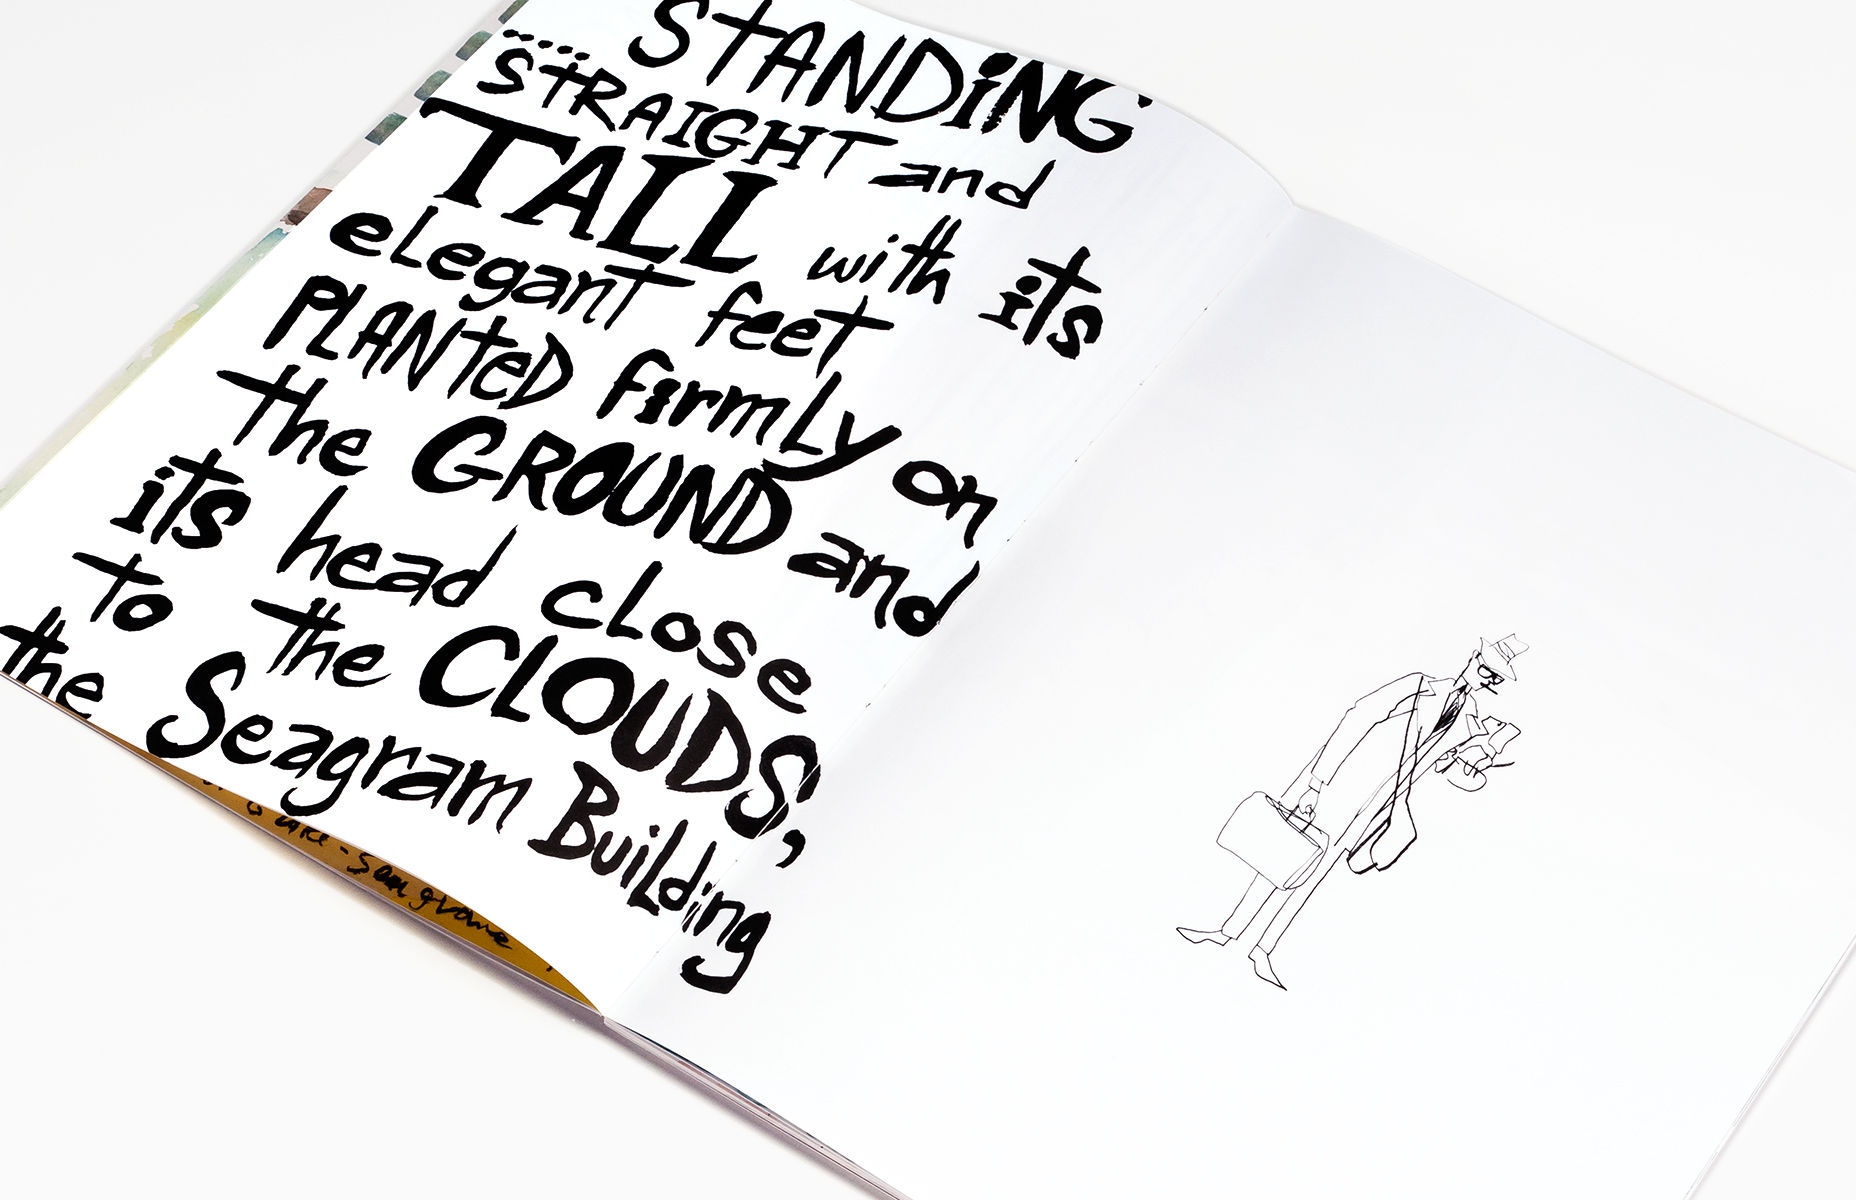 STANDiNG
.....STRAIGHT and
TALL with its
eLegant feet
PLANteD firmLy on
the GROUND and
its head close
to the CLOUDS,
the Seagram Building
- Sam grawe